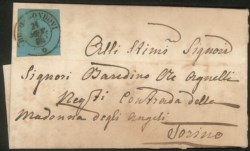 Alli Stimi Signori
Signori Bandino Ore Agnelli
Negti Contrada della
Madonna degli Angeli
Torino